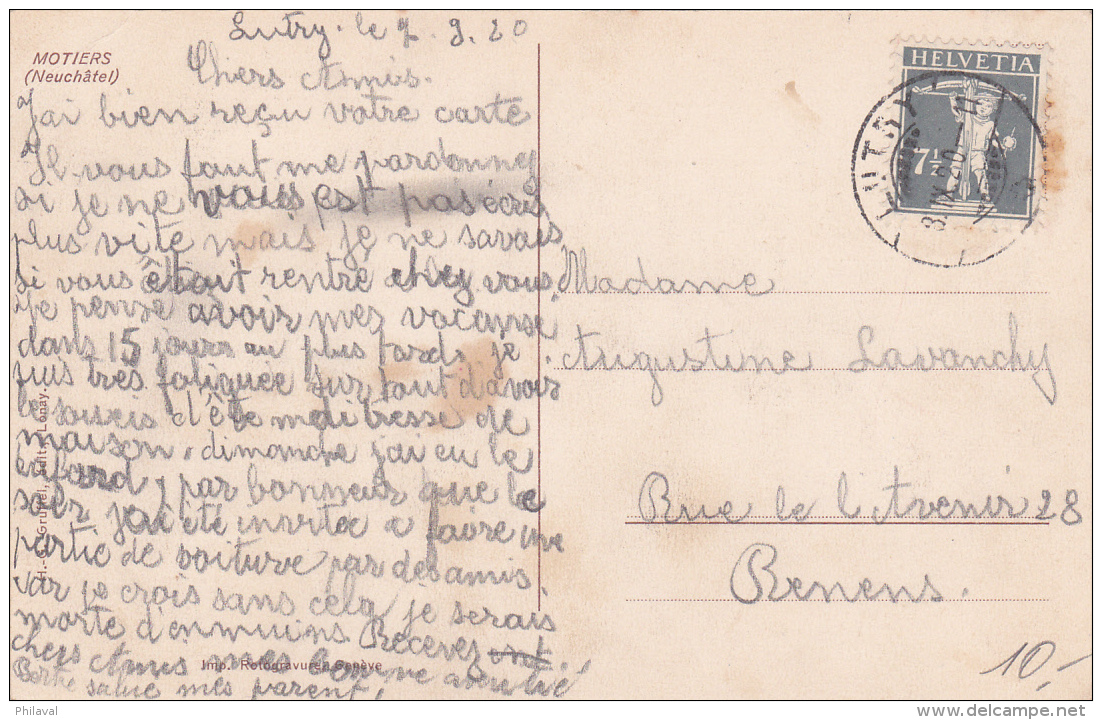 Lutry. le 7.9.20
MOTIERS
(Neuchâtel)
Chers Amis.
J'ai bien reçu votre carte
Il vous faut me pardonner
si je ne vous est pas écris
plus vite mais je ne savais
si vous était rentré chez vous
Je pense avoir mes vacanse
dans 15 jours au plus tard. je
suis très fatiguée surtout d'avoir
le soucis d'être maitresse de
maison. dimanche j'ai eu le
cafard, par bonneur que le
soir j'ai été invitée a faire une
partie de voiture par des amis
car je crois sans cela je serais
morte d'ennuins. Recevez
chers Amis mes bonne amitié
Berthe salue mes parent,
H. Gruffel, édit. Lonay
Imp. Rotogravure, Genève
HELVETIA
7½
LUTRY
8.IX.20.-11
Madame
Augustine Lavanchy
Rue le l'Avenir 28
Renens.
10.-
Philaval
delcampe.net